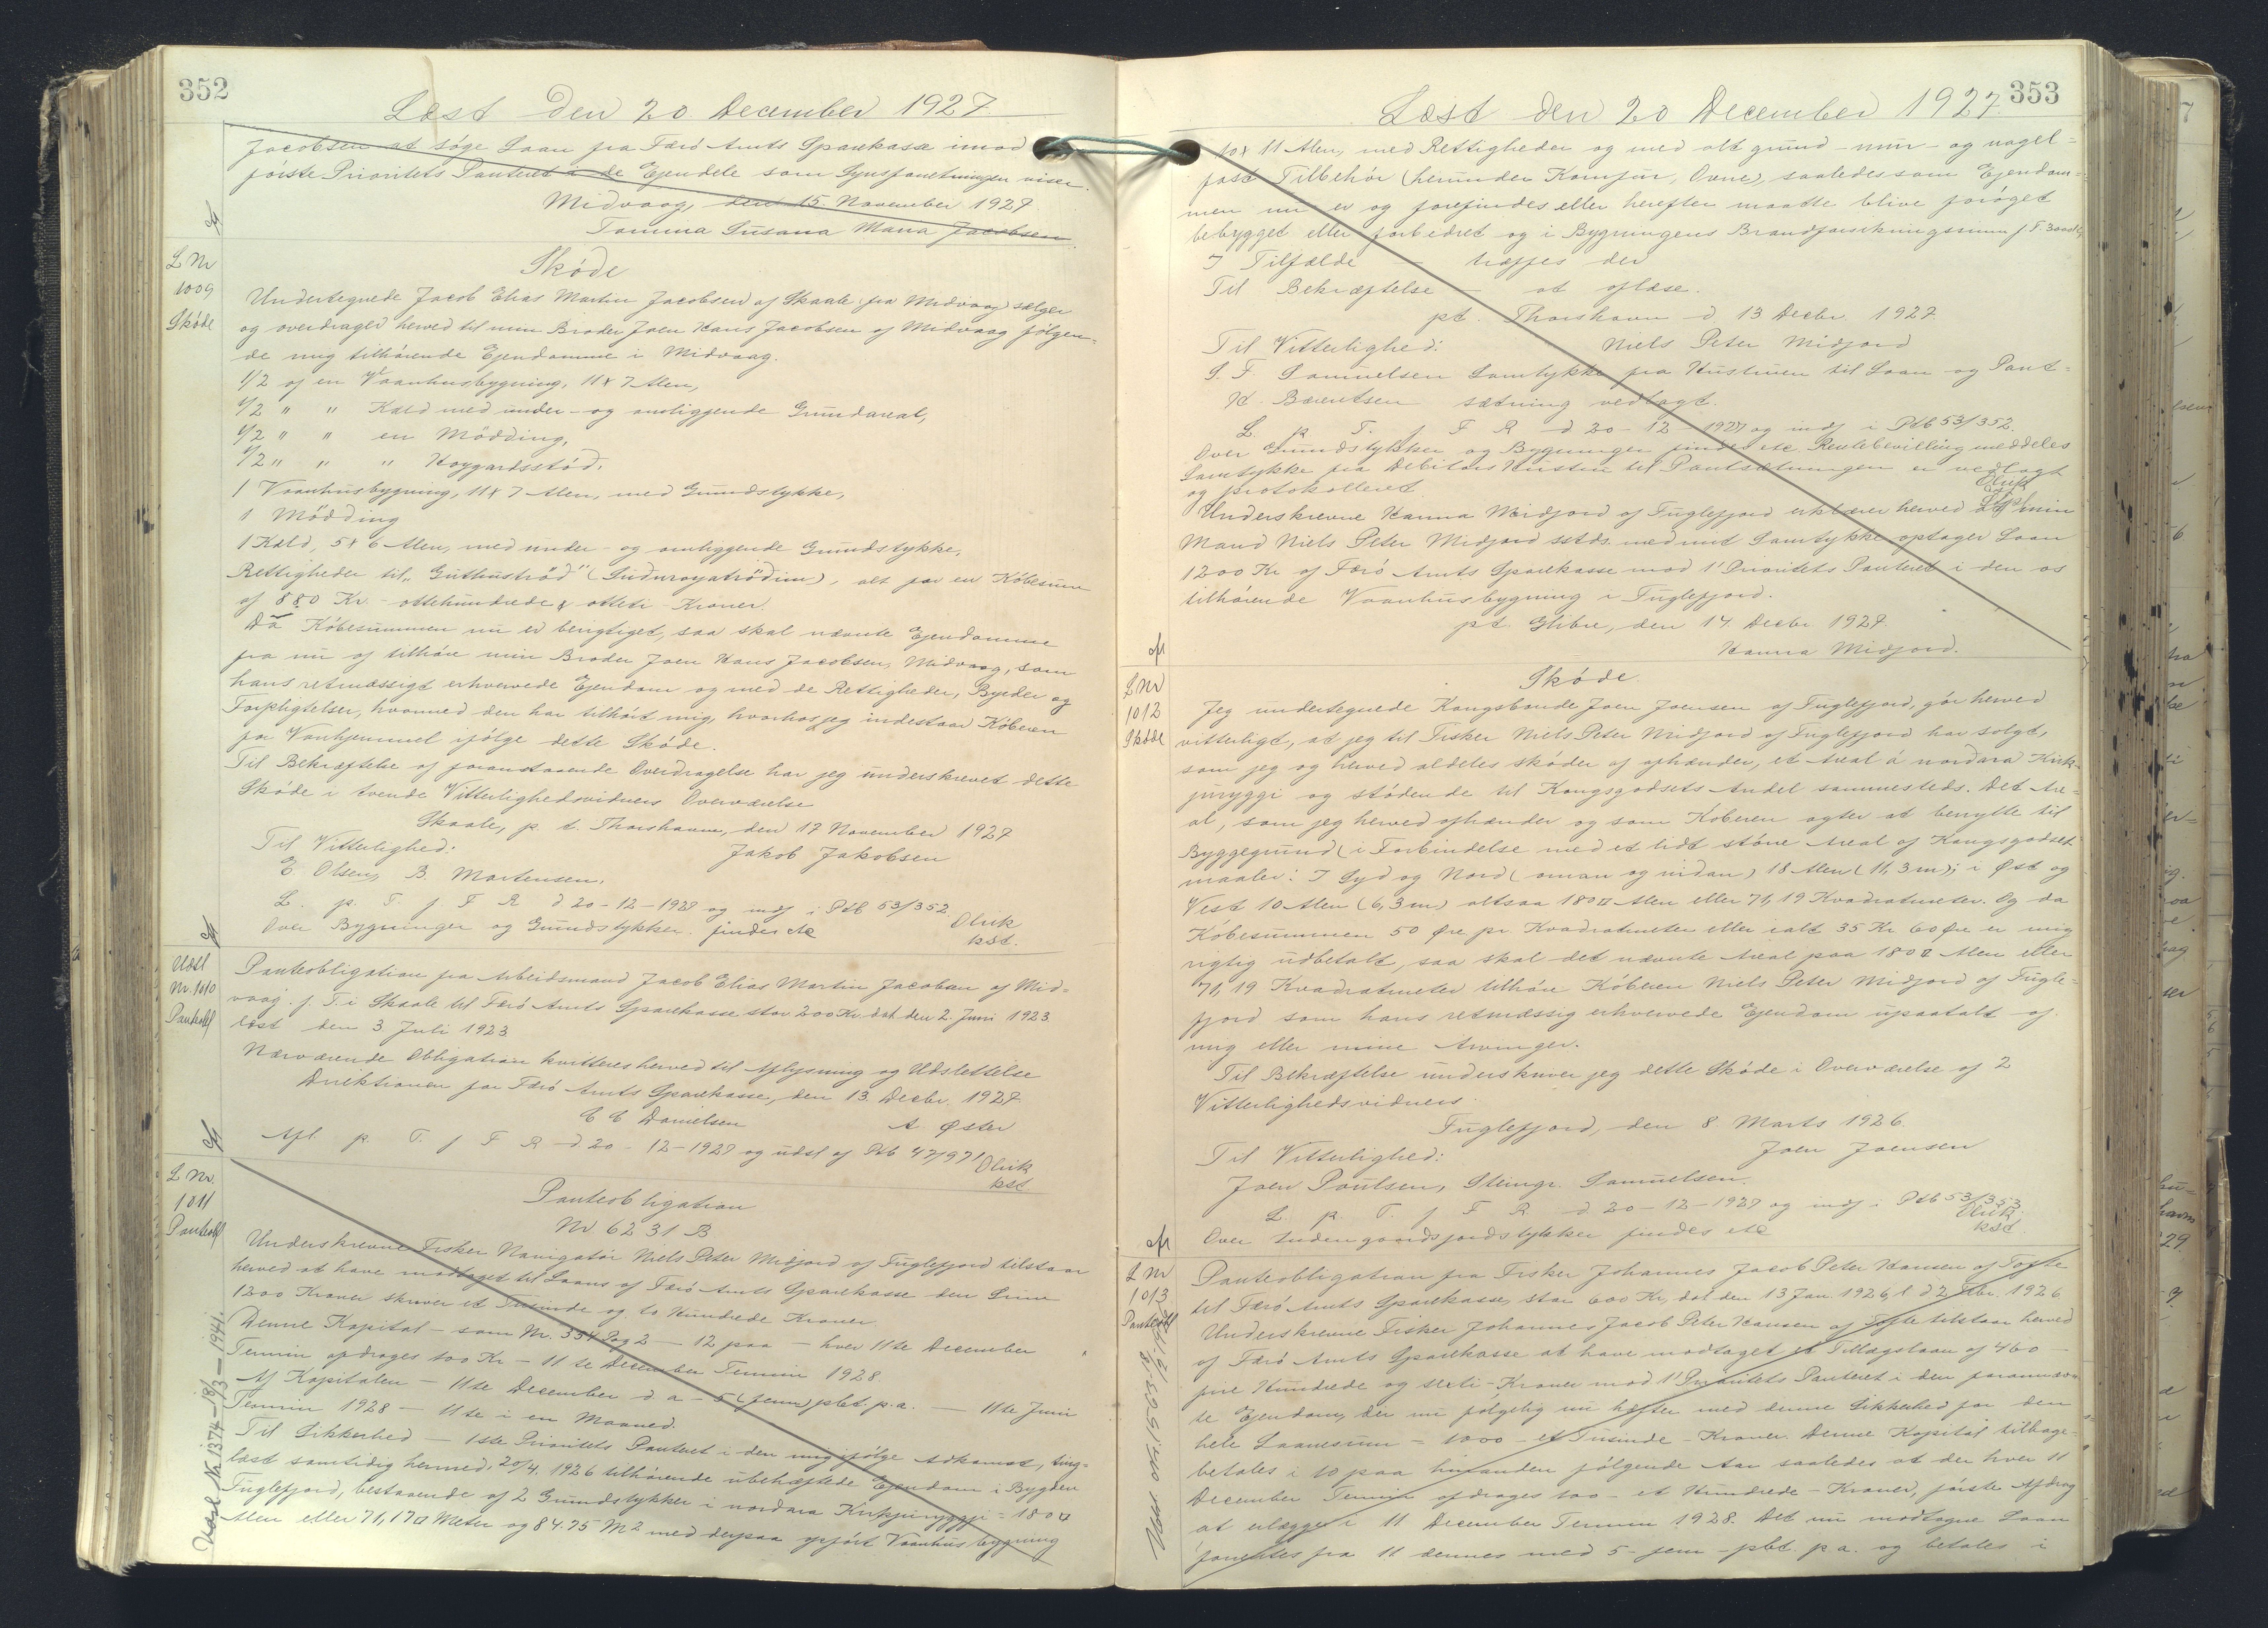 352
Læst den 20 December 1927
Jacobsen at søge Laan fra Færø Amts Sparekasse imod
første Prioritets Panteret i de Ejendele som Synsforretningen viser.
Midvaag, den 15 November 1927
Tomina Susana Maria Jacobsen
L Nr
1009
Skøde
Skøde
Undertegnede Jacob Elias Martin Jacobsen af Skaale fra Midvaag sælger
og overdrager herved til min Broder Joen Hans Jacobsen af Midvaag følgen=
de mig tilhørende Ejendomme i Midvaag.
1/2 af en Vaanhusbygning, 11 x 7 Alen,
1/2 " " Kald med under- og omliggende Grundareal,
1/2 " " en Mødding,
1/2 " " " Hoygardsstød.
1 Vaanhusbygning, 11 x 7 Alen, med Grundstykke,
1 Mødding
1 Kald, 5 x 6 Alen, med under- og omliggende Grundstykke,
Rettigheder til "Guthustrød" (Suduroyatrødin), alt for en Købesum
af 880 Kr. - ottehundrede & otteti Kroner.
Da Købesummen nu er berigtiget, saa skal nævnte Ejendomme
fra nu af tilhøre min Broder Joen Hans Jacobsen, Midvaag, som
hans retmæssigt erhvervede Ejendom og med de Rettigheder, Byrder og
Forpligtelser, hvormed den har tilhørt mig, hvorhos jeg indestaar Køberen
for Vanhjemmel ifølge dette Skøde.
Til Bekræftelse af foranstaaende Overdragelse har jeg underskrevet dette
Skøde i tvende Vitterlighedsvidners Overværelse
Skaale, p. t. Thorshavn, den 17 November 1927
Til Vitterlighed: Jakob Jakobsen
E. Olsen, B. Mortensen.
L. p. T. f F R d 20-12-1927 og indf i Ptb 53/352
Over Bygninger og Grundstykker findes etc
Oluk
kst.
Udsl
Nr. 1010
Panteobl
Panteobligation fra Arbeidsmand Jacob Elias Martin Jacobsen af Mid=
vaag f. T. i Skaale til Færø Amts Sparekasse stor 200 Kr dat den 2. Juni 1923
læst den 3 Juli 1923
Nærværende Obligation kvitteres herved til Aflysning og Udslettelse
Direktionen for Færø Amts Sparekasse, den 13 Decbr. 1927
C C Danielsen A. Øster
Afl p. T. f F R d. 20-12-1927 og udsl af Ptb 47/971
Oluk
kst
L Nr.
1011
Panteobl
Panteobligation
Nr 6231 B
Underskrevne Fisker Navigatør Niels Peter Midjord af Fuglefjord tilstaar
herved at have modtaget til Laans af Færø Amts Sparekasse den Sum
1200 Kroner skriver et Tusinde og to Hundrede Kroner.
Denne Kapital - som Nr. 334 Pag 2 - 12 paa - hver 11te December
Termin afdrages 100 Kr - 11te December Termin 1928.
Af Kapitalen - 11te December d. a - 5 (fem) pCt. p.a. - 11te Juni
Termin 1928 - 11te i en Maaned.
Til Sikkerhed - 1ste Prioritets Panteret i den mig ifølge Adkomst, ting=
læst samtidig hermed, 20/4. 1926 tilhørende ubehæftede Ejendom i Bygden
Fuglefjord, bestaaende af 2 Grundstykker i nordara Kirkjuryggji = 180 □
Alen eller 71,17 □ Meter og 84.75 M² med derpaa opført Vaanhusbygning
Udsl. Nr. 1374-18/3-1941.
353
Læst den 20 December 1927.
10 x 11 Alen, med Rettigheder og med alt grund-mur- og nagel-
fast Tilbehør (herunder Komfur, Ovne), saaledes som Ejendom=
men nu er og forefindes eller herefter maatte blive forøget
bebygget eller forbedret og i Bygningens Brandforsikringssum f. T. 3000 Kr
I Tilfælde - træffes der
Til Bekræftelse - at oplæse.
pt. Thorshavn d 13 Decbr. 1927.
Til Vitterlighed: Niels Peter Midjord
S. F. Samuelsen Samtykke fra Hustruen til Laan og Pant=
H. Berentsen sætning vedlagt.
L. p. T. f F R d 20-12-1927 og indf i Ptb 53/352.
Over Grundstykker og Bygninger findes etc. Rentebevilling meddeles
Samtykke fra Debitors Hustru til Pantsætningen er vedlagt
og protokolleret.
Oluk
Underskrevne Hanna Midjord af Fuglefjord erklærer herved at min
Mand Niels Peter Midjord sstds. med mit Samtykke optager Laan
1200 Kr af Færø Amts Sparekasse mod 1' Prioritets Panteret i den os
tilhørende Vaanhusbygning i Fuglefjord.
pt. Glibre, den 14 Decbr 1927.
Hanna Midjord.
L Nr
1012
Skøde
Skøde.
Jeg undertegnede Kongsbonde Joen Joensen af Fuglefjord, gør herved
vitterligt, at jeg til Fisker Niels Peter Midjord af Fuglefjord har solgt,
som jeg og herved aldeles skøder og afhænder, et Areal á nordara Kirk-
juryggi og stødende til Kongsgodsets Andel sammesteds. Det Are-
al, som jeg herved afhænder og som Køberen agter at benytte til
Byggegrund (i Forbindelse med et lidt større Areal af Kongsgodset
maaler: I Syd og Nord (oman og nidan) 18 Alen (11,3 m); i Øst og
Vest 10 Alen (6,3 m) altsaa 180 □ Alen eller 71,19 Kvadratmeter. Og da
Købesummen 50 Øre pr Kvadratmeter eller ialt 35 Kr 60 Øre er mig
rigtig udbetalt, saa skal det nævnte Areal paa 180 □ Alen eller
71,19 Kvadratmeter tilhøre Køberen Niels Peter Midjord af Fugle-
fjord som hans retmæssig erhvervede Ejendom upaatalt af
mig eller mine Arvinger.
Til Bekræftelse underskriver jeg dette Skøde i Overværelse af 2
Vitterlighedsvidners.
Fuglefjord, den 8 Marts 1926.
Til Vitterlighed: Joen Joensen
Joen Poulsen, Steingr. Samuelsen.
L. p. T. f F R d. 20-12-1927 og indf i Ptb 53/353.
Over Indengaardsjordstykker findes etc
Oluk
kst
L Nr
1013
Panteobl
Panteobligation fra Fisker Johannes Jacob Peter Hansen af Tofte
til Færø Amts Sparekasse, stor 600 Kr, dat den 13 Jan 1926, l d 2 Fbr. 1926
Underskrevne Fisker Johannes Jacob Peter Hansen af Tofte tilstaar herved
af Færø Amts Sparekasse at have modtaget et Tillægslaan af 400
fire Hundrede og Kroner mod 1' Prioritets Panteret i den forannævn
te Ejendom, der nu følgelig nu hæfter med denne Sikkerhed for den
hele Laanesum = 1000 - et Tusinde - Kroner. Denne Kapital tilbage-
betales i 10 paa hinanden følgende Aar saaledes at der hver 11
December Termin afdrages 100 - et Hundrede - Kroner, første Afdrag
at erlægge i 11 December Termin 1928. Det nu modtagne Laan
forrentes fra 11 dennes med 5 - fem - pCt. p a. og betales i